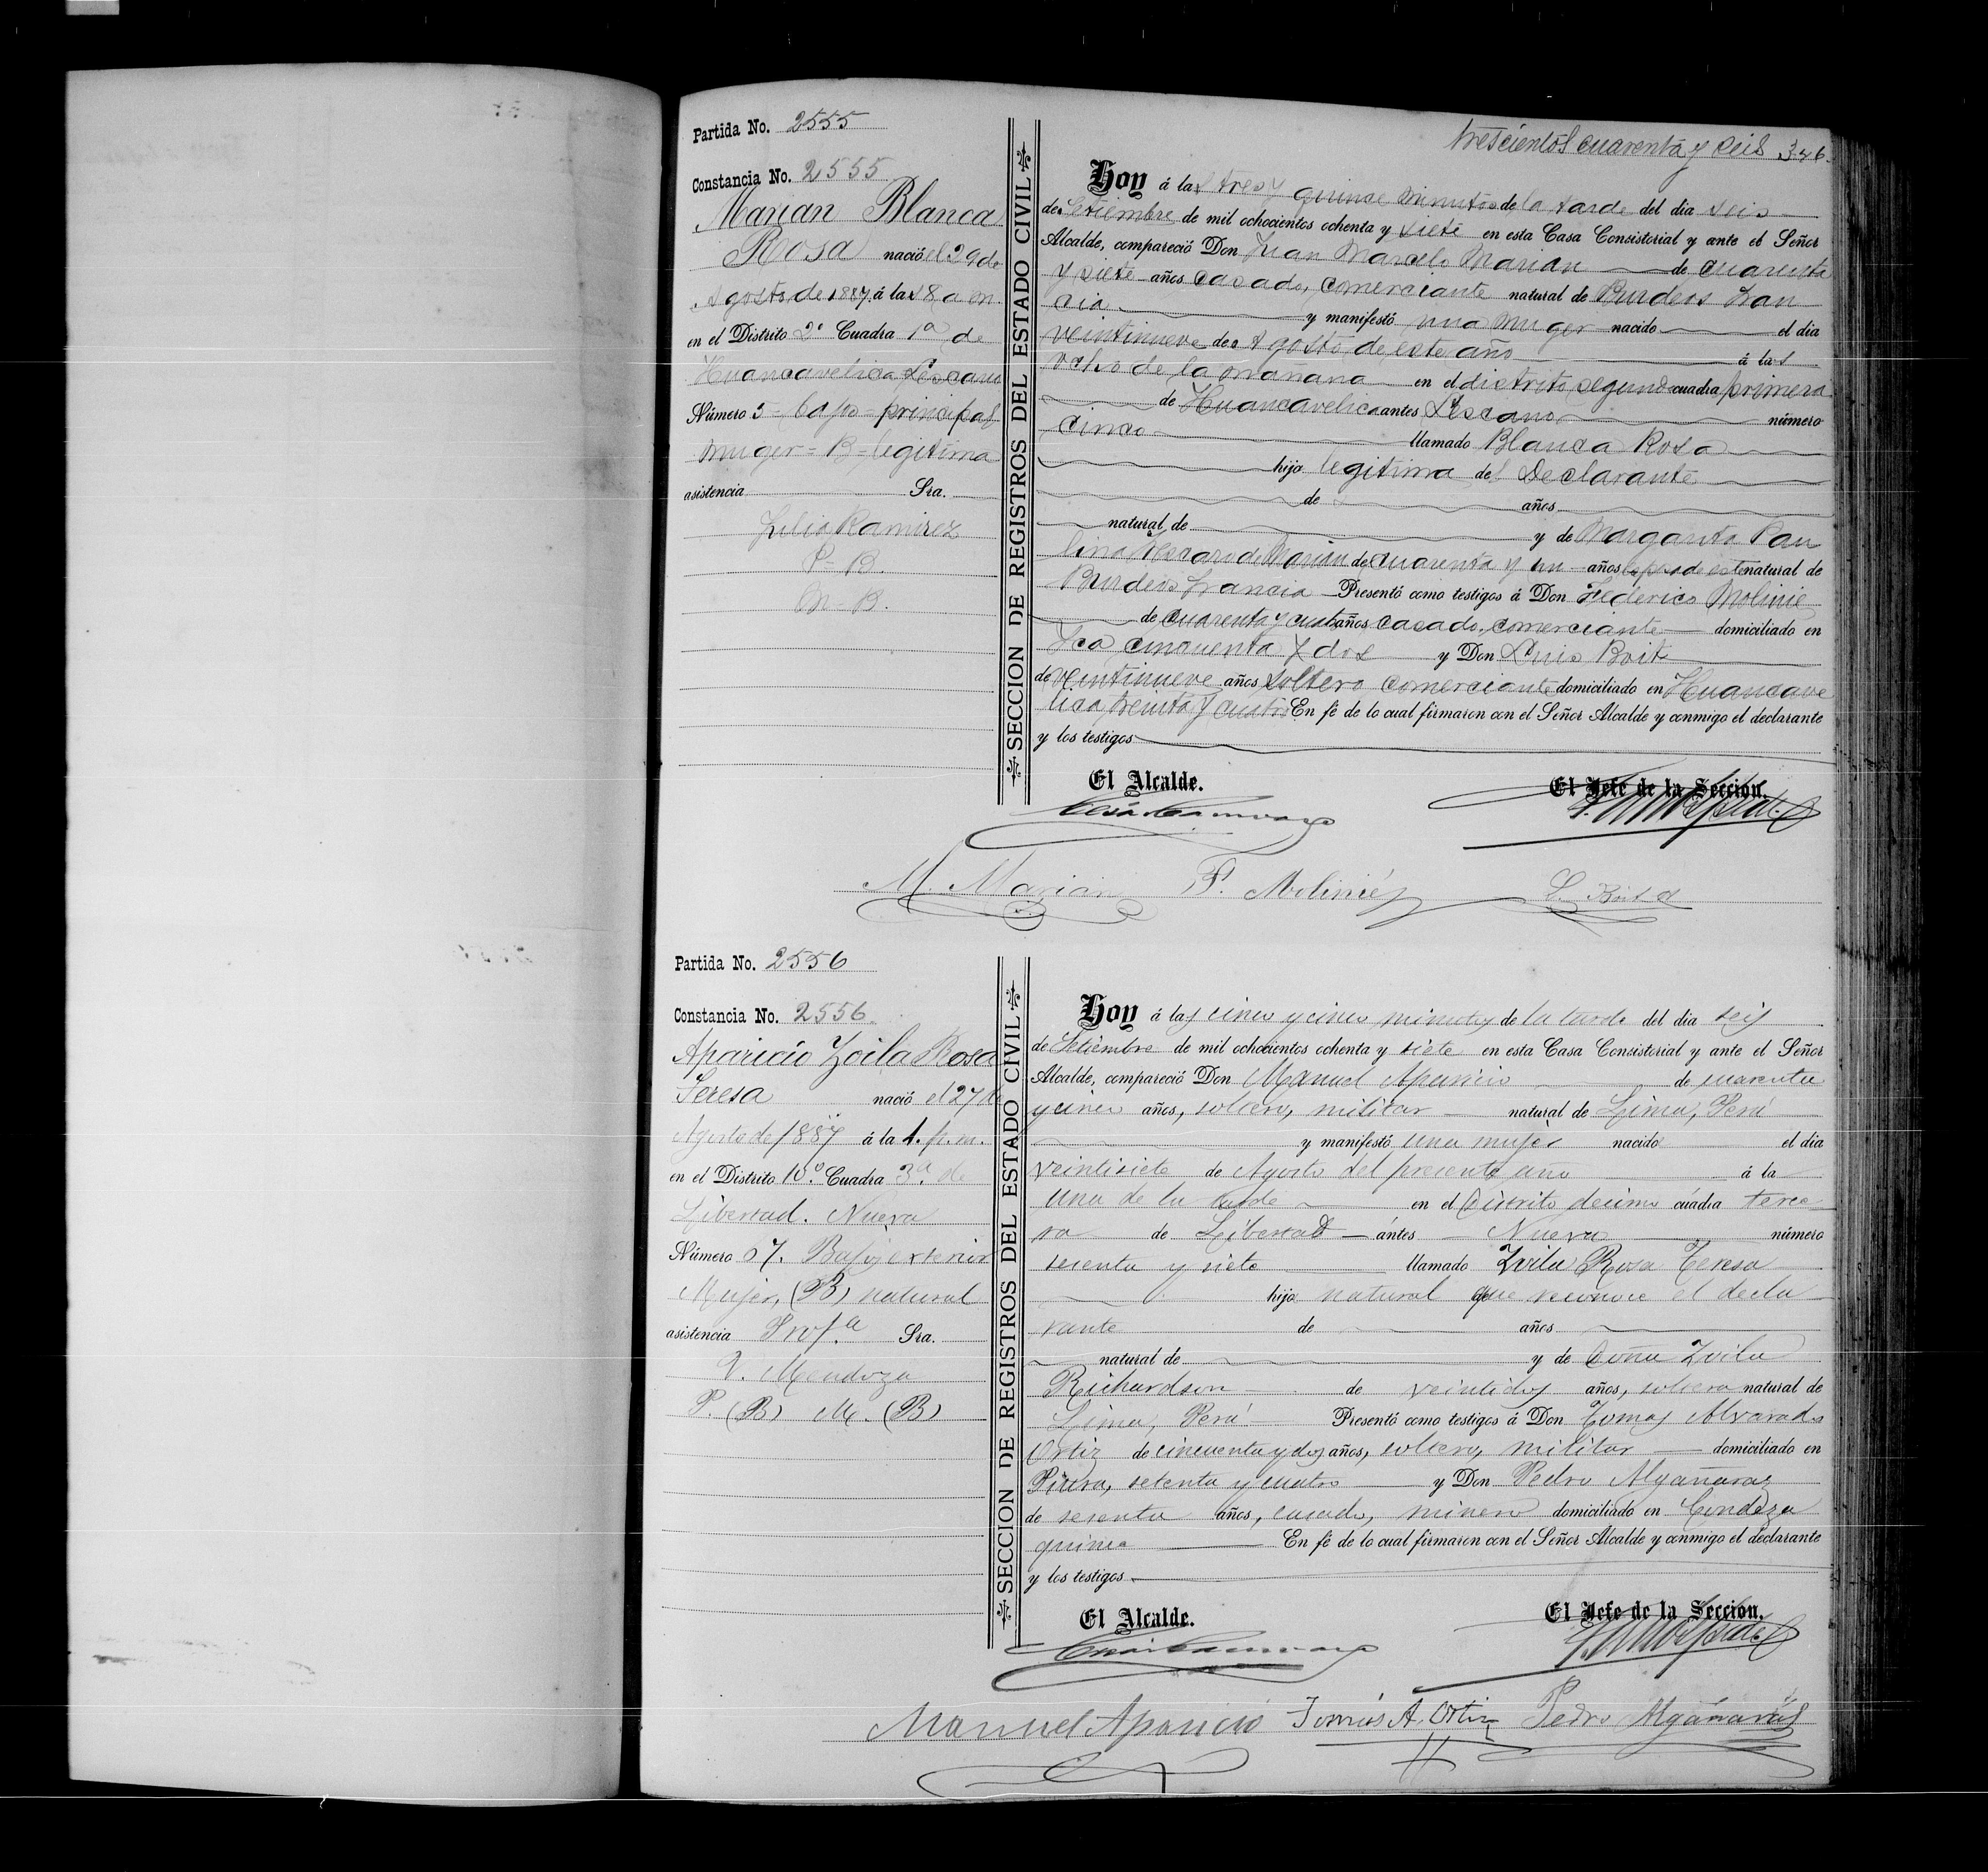 trescientos cuarenta y seis 346.
Partida No. 2555
Constancia No. 2555
Marian Blanca
Rosa nació el 29 de
Agosto de 1887. á las 8 a m.
en el Distrito 2º Cuadra 1ª de
Huancavelica Lescano
Número 5 = bajo = principal
muger = B = legitima
asistencia Sra.
Ramirez
P- B.
M- B.
SECCION DE REGISTROS DEL ESTADO CIVIL
Hoy á las tres y quinse minutos de la tarde del dia seis
de Setiembre de mil ochocientos ochenta y siete en esta Casa Consistorial y ante el Señor
Alcalde, compareció Don Juan Marcelo Marian de cuarenta
y siete años casado, comerciante natural de Burdeos Fran
cia y manifestó una muger nacido el dia
veintinueve de Agosto de este año á las
ocho de la mañana en el distrito segundo cuadra primera
de Huancavelica antes Lescano número
cinco llamado Blanca Rosa
hija legitima del Declarante
de años
natural de y de Margarita Pau
lina de Marian de cuarenta y un años esposa de este natural de
Burdeos Francia Presentó como testigos á Don Federico Molinie
de cuarenta y años casado, comerciante domiciliado en
Ica cincuenta y dos y Don Luis
de veintinueve años soltero comerciante domiciliado en Huancave
lica treinta y cuatro En fé de lo cual firmaron con el Señor Alcalde y conmigo el declarante
y los testigos
El Alcalde. El Jefe de la Seccion.
M. Marian F. Molinié L.
Partida No. 2556
Constancia No. 2556
Aparicio Zoila Rosa
Teresa nació el 27 de
Agosto de 1887 á la 1. p. m.
en el Distrito 10.º Cuadra 3.ª de
Libertad. Nueva
Número 67. Bajo exterior
Mujer, (B) natural
asistencia Prof.ª Sra.
V. Mendoza
P. (B) M. (B)
SECCION DE REGISTROS DEL ESTADO CIVIL
Hoy á las cinco y cinco minutos de la tarde del dia seis
de Setiembre de mil ochocientos ochenta y siete en esta Casa Consistorial y ante el Señor
Alcalde, compareció Don Manuel Aparicio de cuarenta
y cinco años, soltero, militar natural de Lima, Perú
y manifestó una mujer nacido el dia
veintisiete de Agosto del presente año á la
una de la tarde en el Distrito decimo cuadra terce
ra de Libertad antes Nueva número
sesenta y siete llamado Zoila Rosa Teresa
hija natural que reconoce el decla
rante de años
natural de y de Doña Zoila
Richardson de veintidos años, soltera natural de
Lima, Perú Presentó como testigos á Don Tomas Alvarado
Ortiz de cincuenta y dos años, soltero, militar domiciliado en
Piura, setenta y cuatro y Don Pedro Algañaras
de sesenta años, casado, minero domiciliado en Condeza
quince En fé de lo cual firmaron con el Señor Alcalde y conmigo el declarante
y los testigos
El Alcalde. El Jefe de la Seccion.
Manuel Aparicio Tomás A. Ortiz Pedro Algañarás